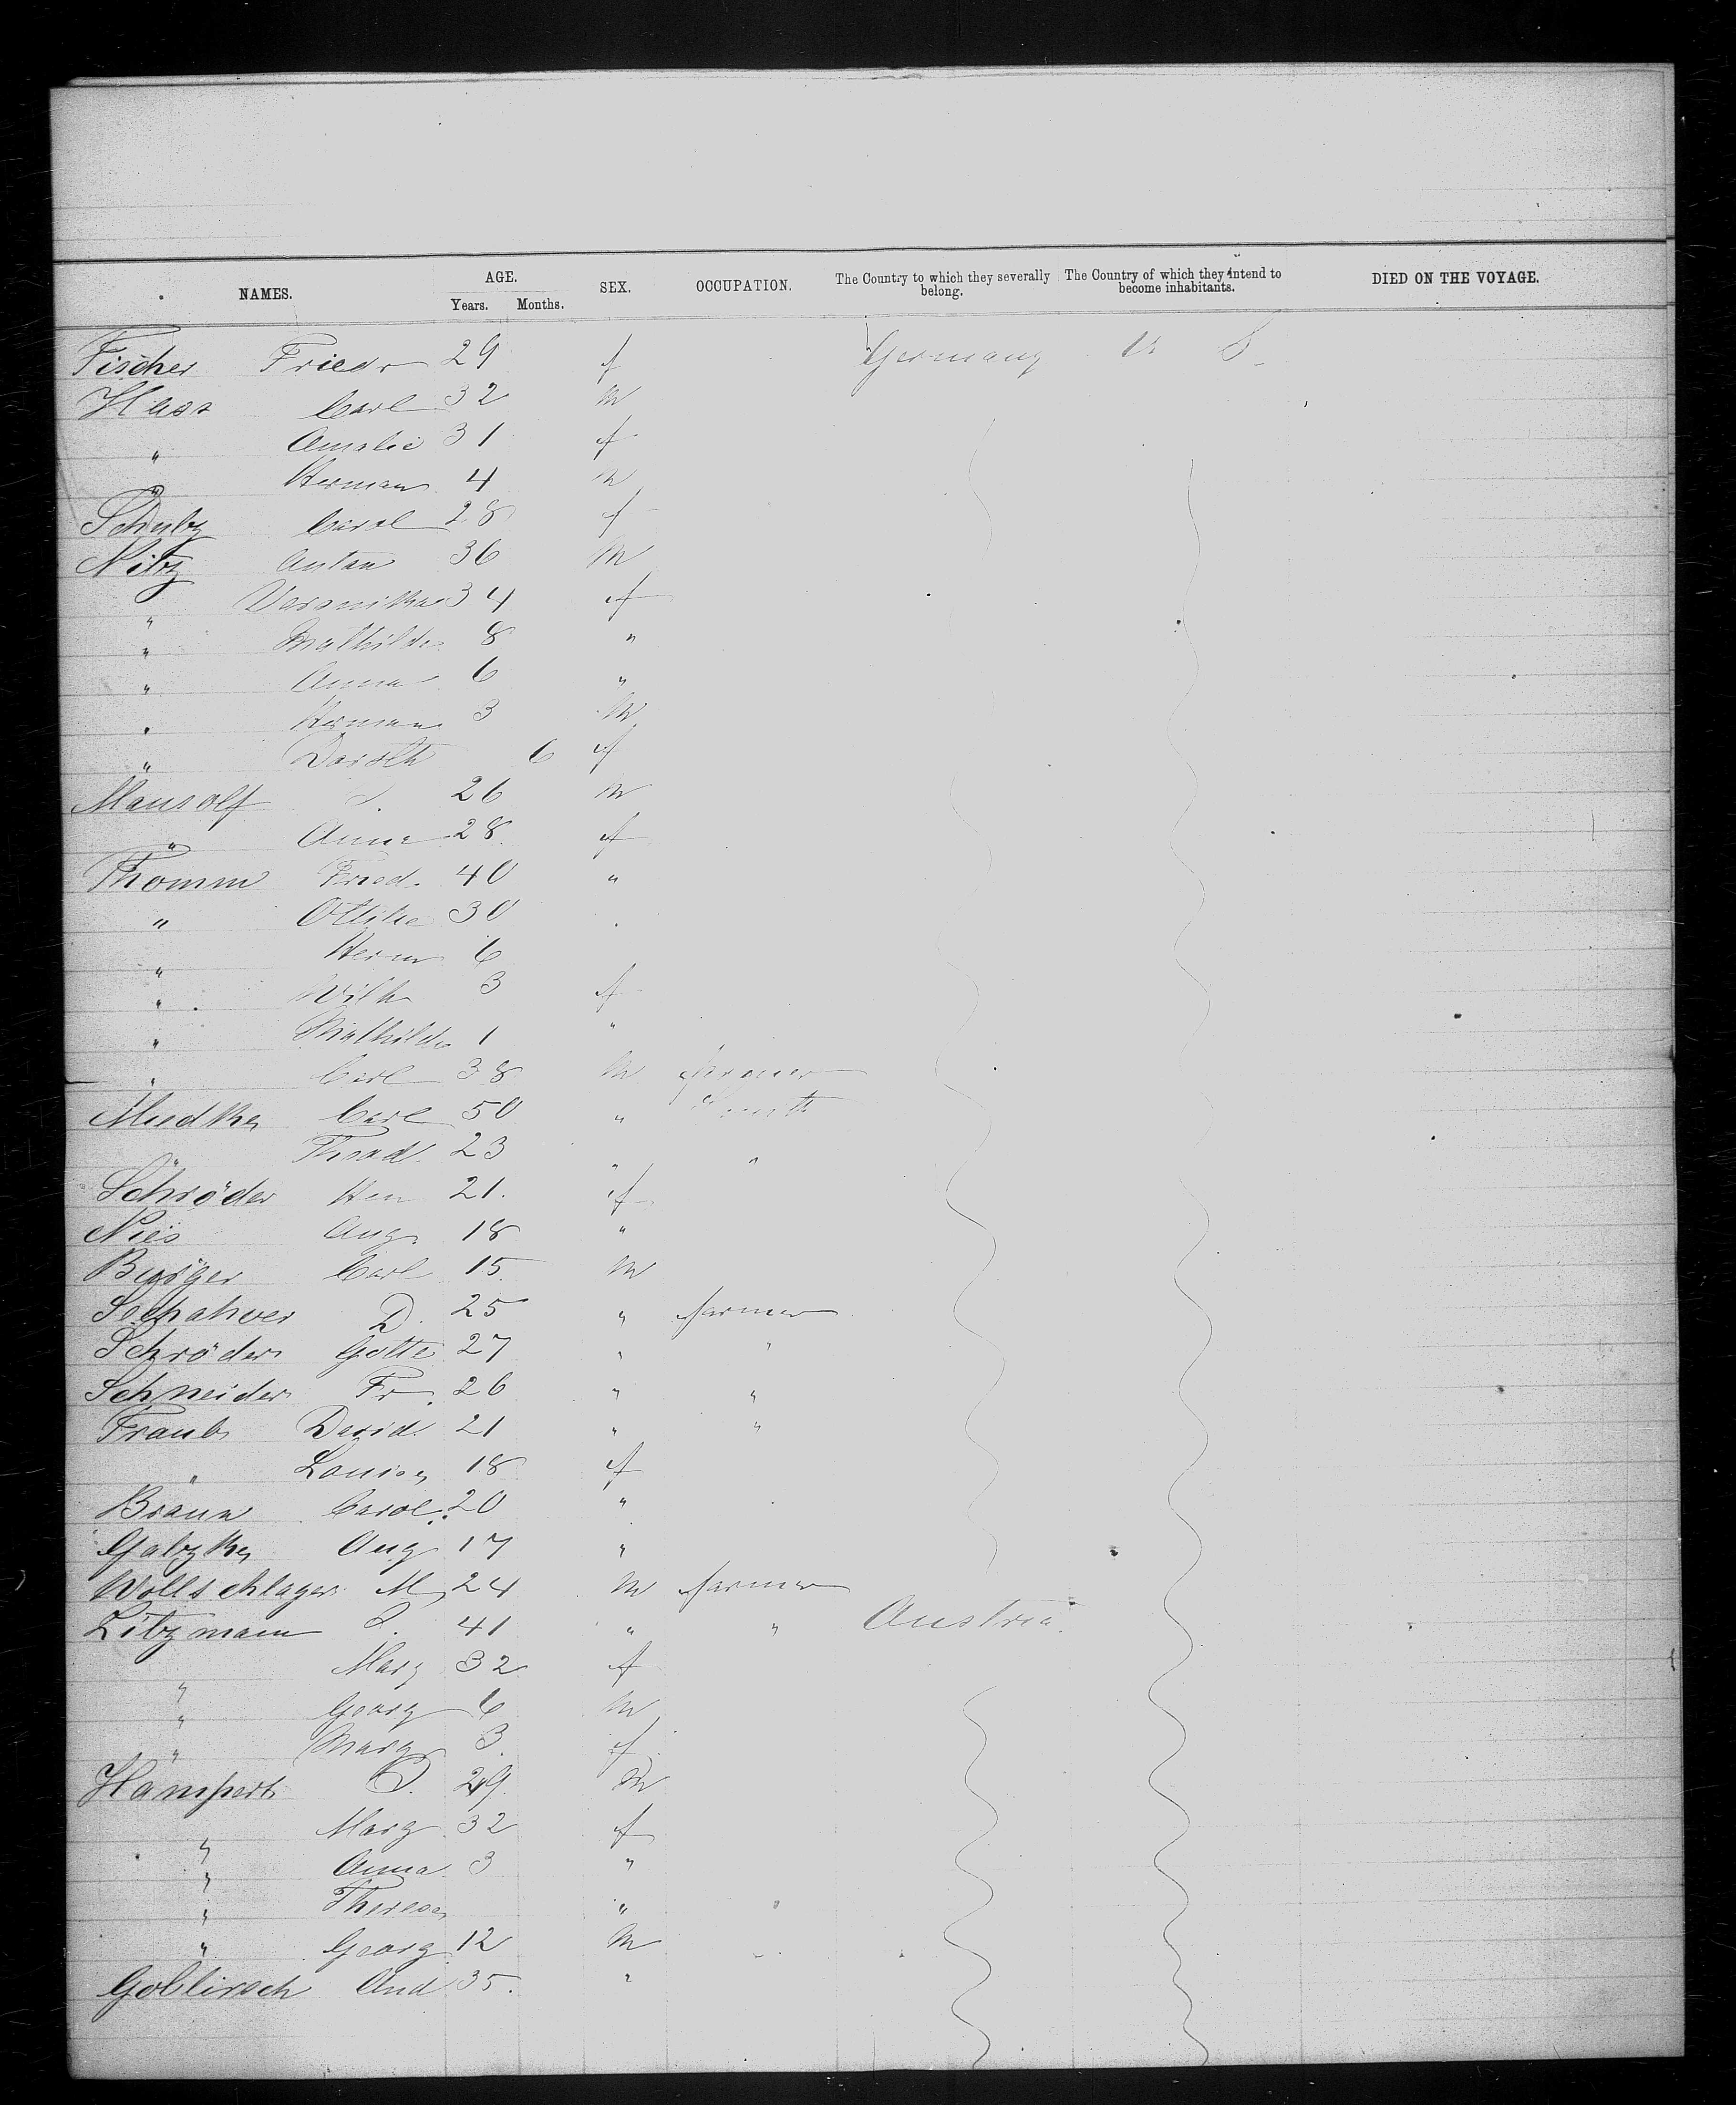 NAMES. AGE. SEX. OCCUPATION. The Country to which they severally belong. The Country of which they intend to become inhabitants. DIED ON THE VOYAGE.
Years. Months.
Fischer Friedr 29 f Germany U S
Hass Carl 32 M
" Amalie 31 f
" Herman 4 M
Schulz Carol 28 f
Nitz Anton 36 M
" Veronika 34 f
" Mathilde 8 "
" Anna 6 "
" Herman 3 M
" Doroth 6 f
Mansolf 26 M
" Anna 28 f
Thomm Fried. 40 "
" Ottilie 30 "
" Herm 6
" Wilh 3 f
" Mathilde 1 "
" Carl 38 M farmer
Mudtke Carl 50 " Smith
" Theod. 23 " "
Schröder Hen 21. f
Nies Aug. 18 "
Burger Carl 15. M
D. 25 " farmer
Schröder Gotte 27 " "
Schneider Fr. 26 " "
Traub David 21 " "
" Louise 18 f
Braun Carol. 20 "
Gatzke Aug 17 "
Wollschlager M 24 M farmer
Litzmann 41 " " Austria.
" Marg 32 f
" Georg 6 M
" Marg 3. f
Hampert 29. M
" Marg 32 f
" Anna 3 "
" Therese "
" Georg 12 M
Goblirsch And 35. "